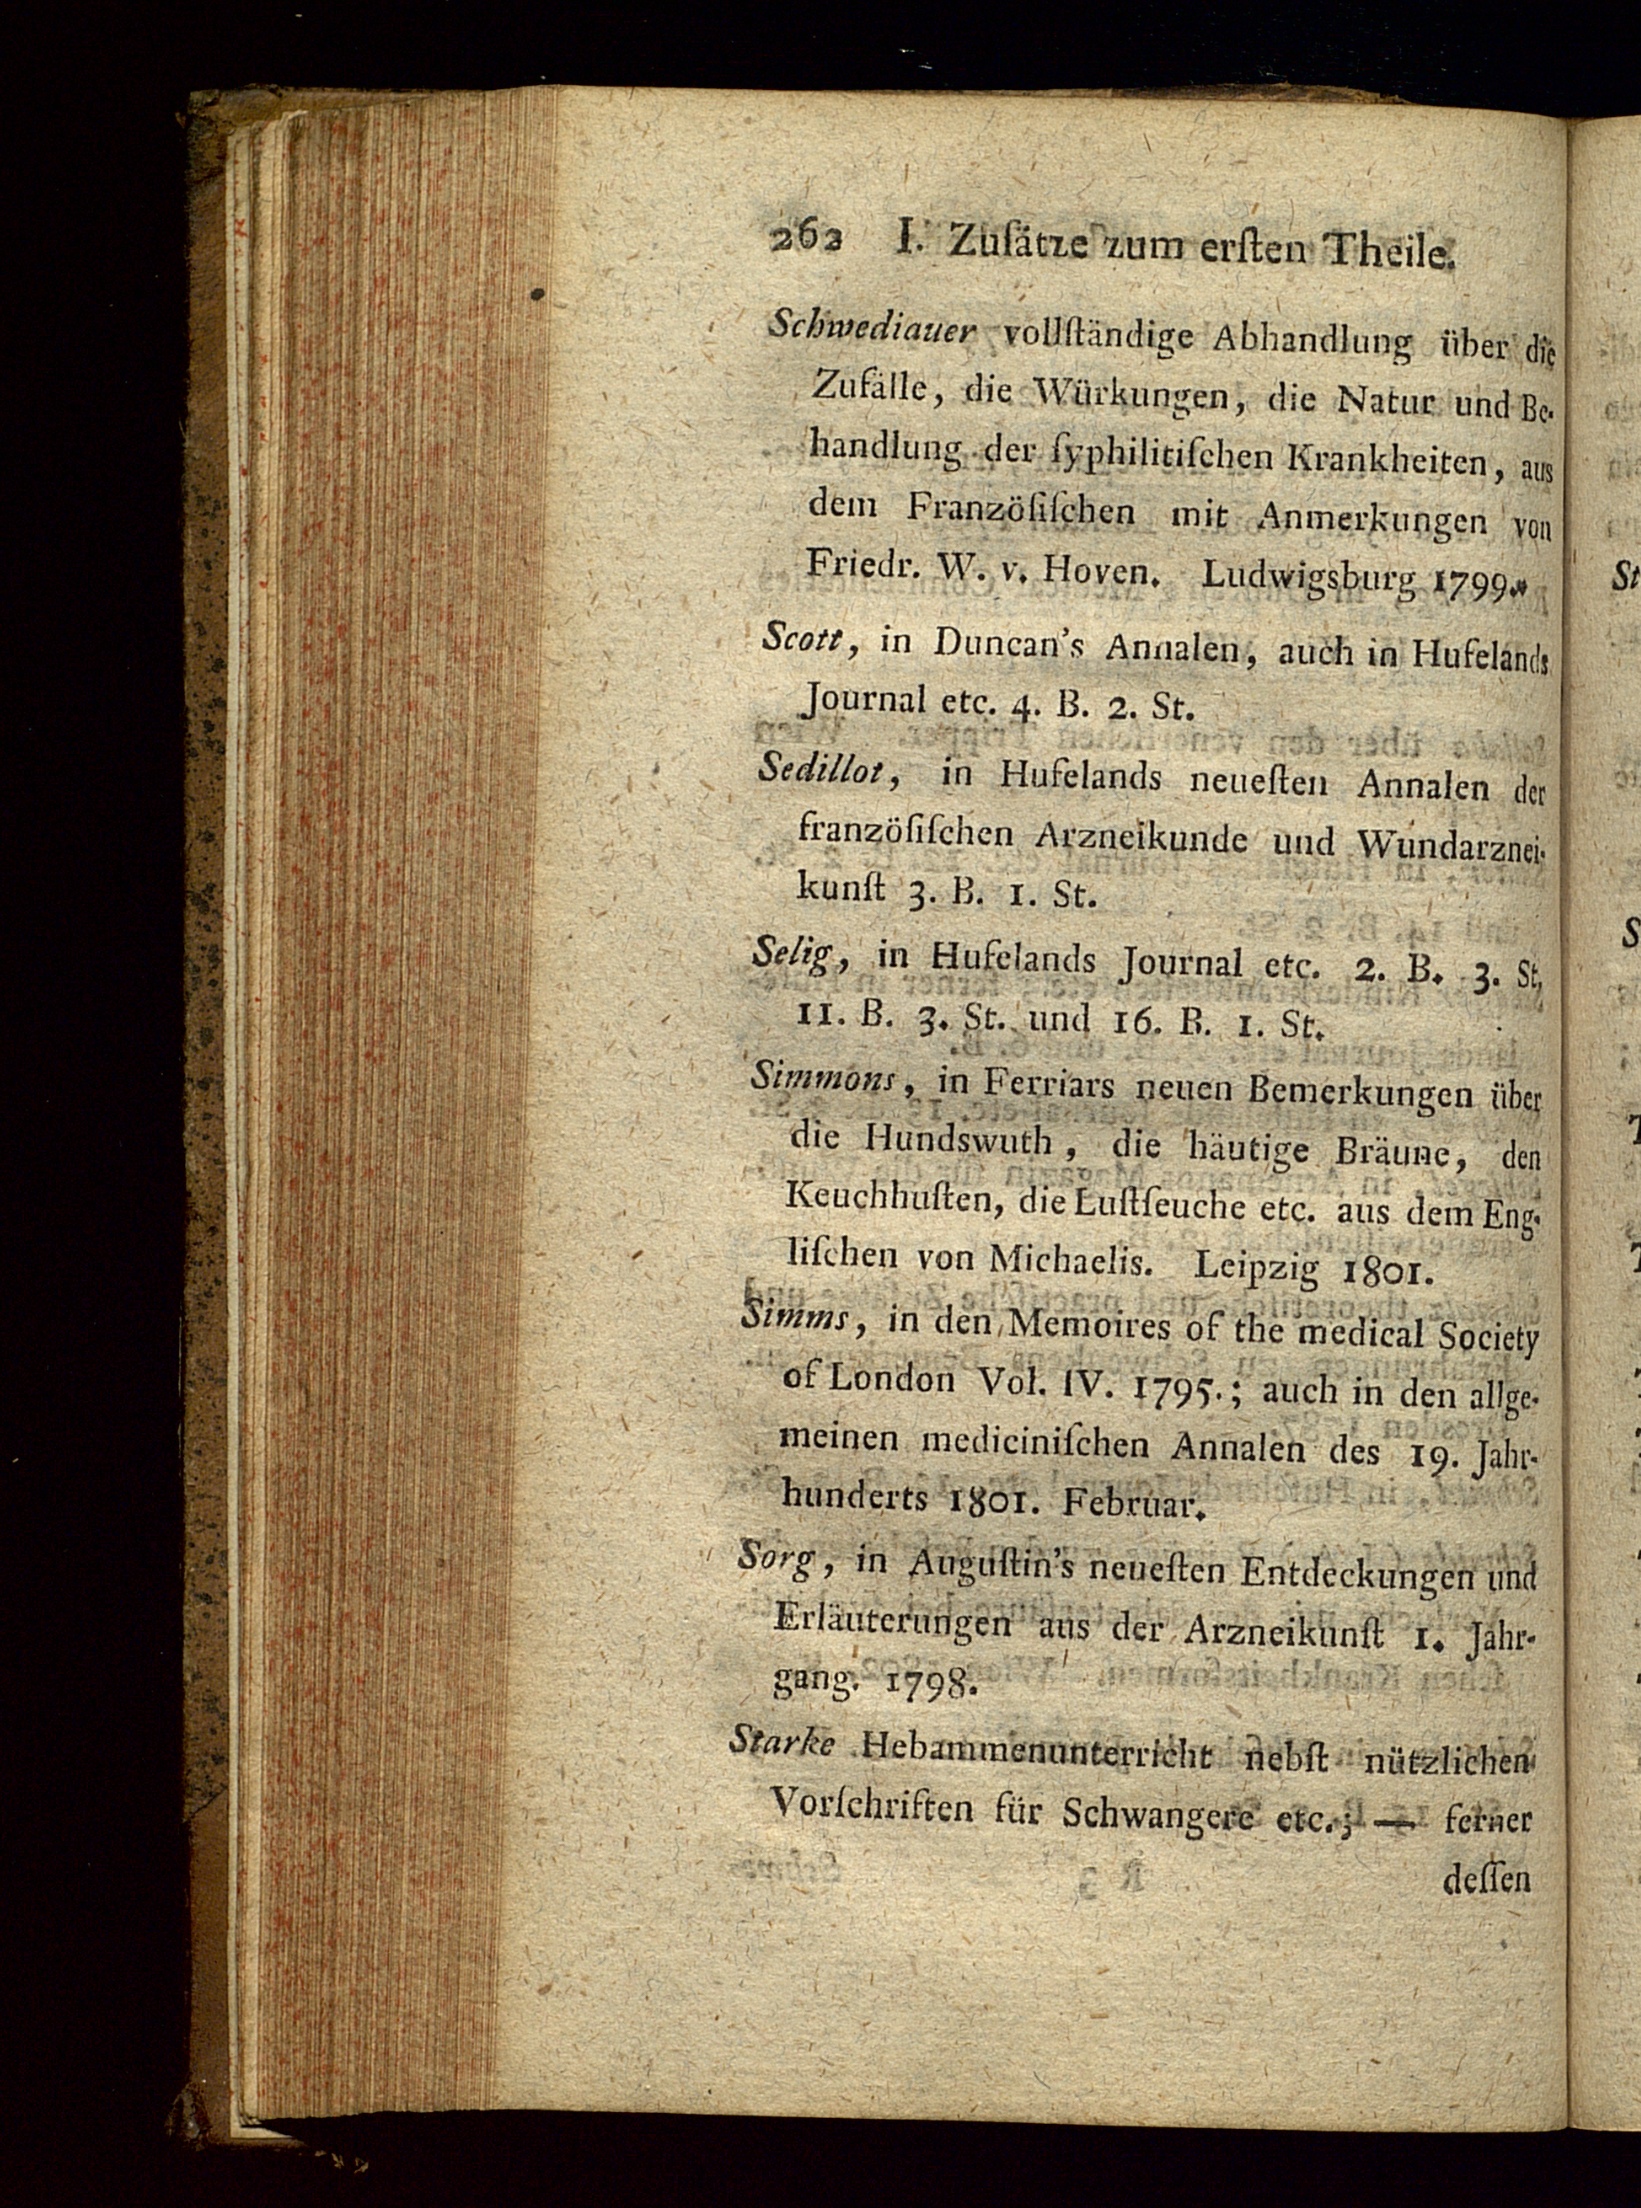 262 I. Zuſätze zum erſten Theile.
Schwediauer vollſtändige Abhandlung über die
Zufälle, die Würkungen, die Natur und Be-
handlung der ſyphilitiſchen Krankheiten, aus
dem Franzöſiſchen mit Anmerkungen von
Friedr. W. v. Hoven. Ludwigsburg 1799.
Scott, in Duncan's Annalen, auch in Hufelands
Journal etc. 4. B. 2. St.
Sedillot, in Hufelands neueſten Annalen der
franzöſiſchen Arzneikunde und Wundarznei-
kunſt 3. B. 1. St.
Selig, in Hufelands Journal etc. 2. B. 3. St.
11. B. 3. St. und 16. B. 1. St.
Simmons, in Ferriars neuen Bemerkungen über
die Hundswuth, die häutige Bräune, den
Keuchhuſten, die Luſtſeuche etc. aus dem Eng-
liſchen von Michaelis. Leipzig 1801.
Simms, in den Memoires of the medical Society
of London Vol. IV. 1795.; auch in den allge-
meinen mediciniſchen Annalen des 19. Jahr-
hunderts 1801. Februar.
Sorg, in Auguſtin's neueſten Entdeckungen und
Erläuterungen aus der Arzneikunſt 1. Jahr-
gang. 1798.
Starke Hebammenunterricht nebſt nützlichen
Vorſchriften für Schwangere etc.; — ferner
deſſen